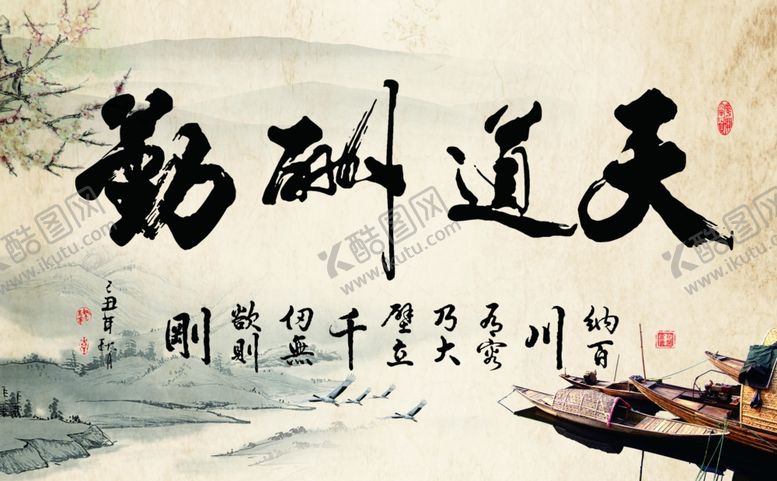 天道酬勤
納百川有容乃大壁立千仞無欲則剛
己丑年秋月
酷图网
www.ikutu.com
酷图网
www.ikutu.com
酷图网
www.ikutu.com